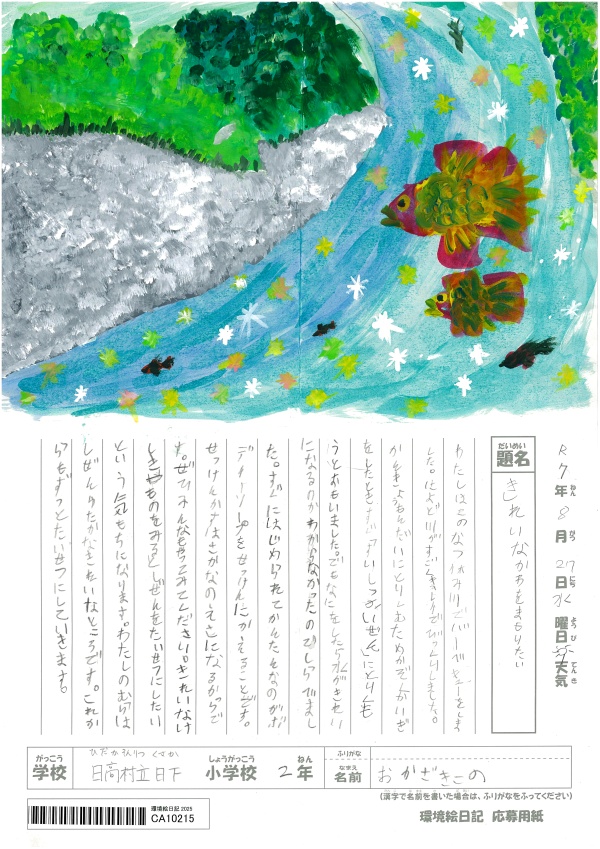 R7年ねん8月がつ27日にち水曜日ようび天気てんき
だいめい
題名
きれいなかわをまもりたい
わたしはこのなつ休みに川でバーベキューをしま
した。によど川がすごくきれいでびっくりしました。
かんきょうもんだいにとりくむためかぞくかいぎ
をしたとき「すいしつかいぜん」にとりくも
うとおもいました。でもなにをしたら水がきれい
になるのかわからなかったのでしらべまし
た。すぐにはじめられてかんたんなのがボ
ディーソープをせっけんにかえることです。
せっけんかすはさかなのえさになるからで
す。ぜひみんなもやってみてください。きれいなけ
しきやものをみるとしぜんをたいせつにしたい
という気もちになります。わたしのむらは
しぜんゆたかなきれいなところです。これか
らもずっとたいせつにしていきます。
がっこう ひだかそんりつ くさか しょうがっこう ねん ふりがな
学校 日高村立日下 小学校 2年 なまえ 名前 おかざきこの
(漢字で名前を書いた場合は、ふりがなをふってください)
環境絵日記 2025
CA10215
環境絵日記 応募用紙